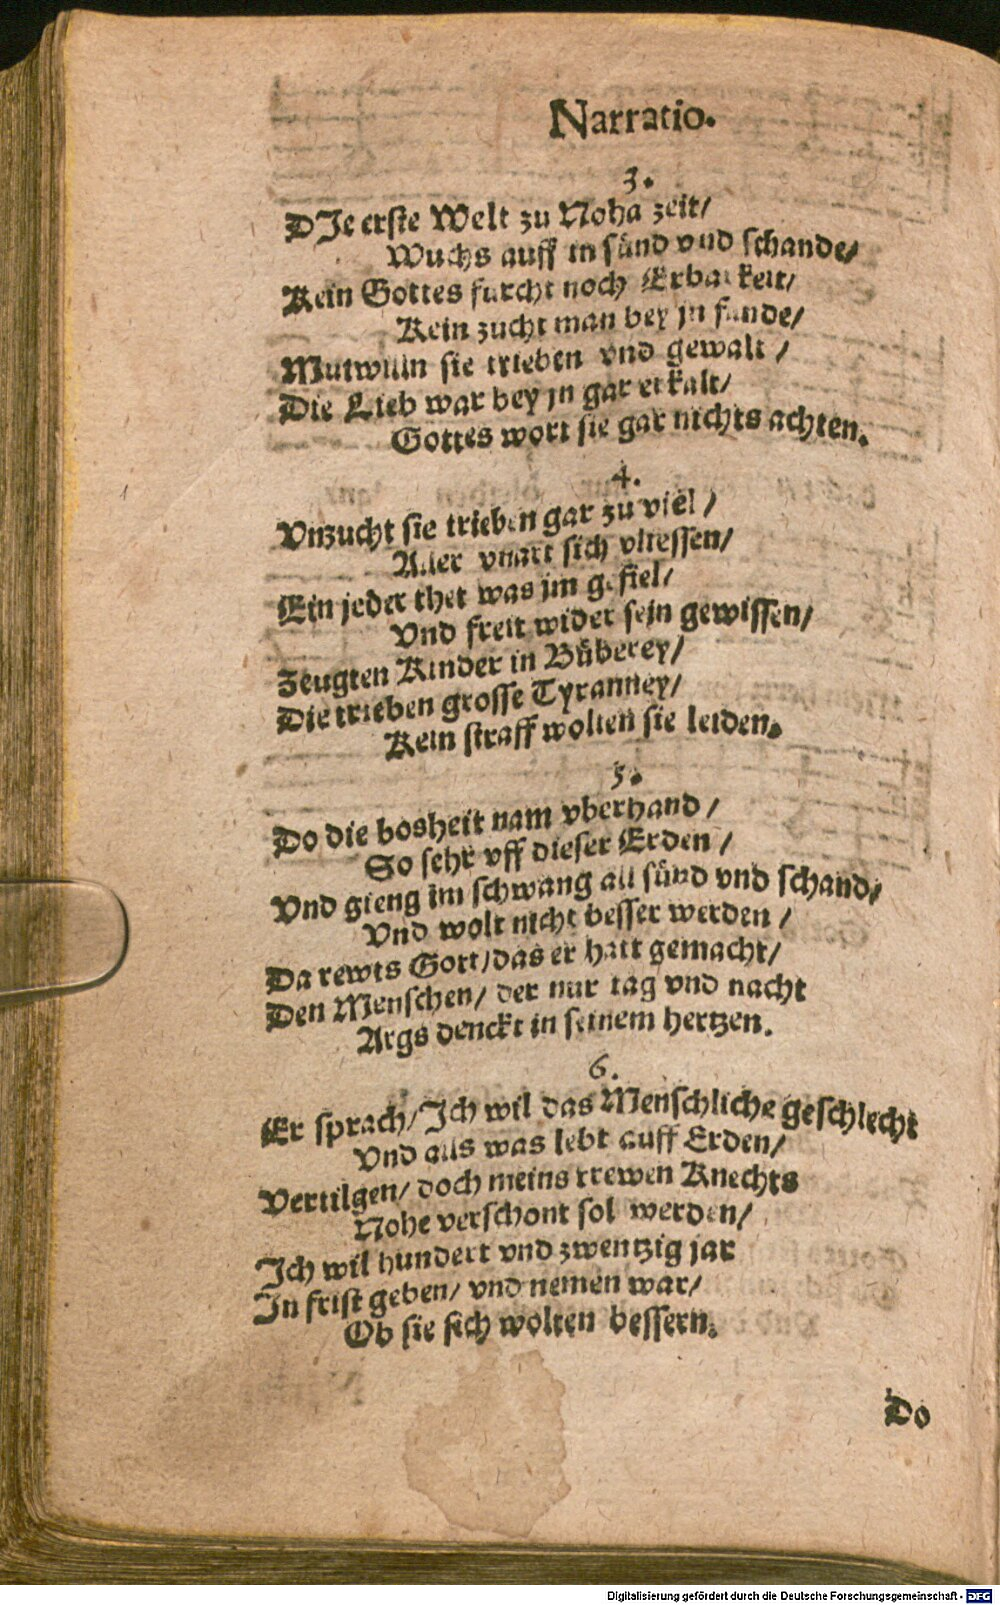 Narratio.
3.
DJe erste Welt zu Noha zeit/
Wuchs auff in sünd vnd schande/
Kein Gottes furcht noch Erbarkeit/
Kein zucht man bey jn fande/
Mutwilln sie trieben vnd gewalt /
Die Lieb war bey jn gar erkalt/
Gottes wort sie gar nichts achten.
4.
Vnzucht sie trieben gar zu viel /
Aller vnart sich vliessen/
Ein jeder thet was jm gefiel/
Vnd freit wider sein gewissen/
Zeugten Kinder in Büberey/
Die trieben grosse Tyranney/
Kein straff wolten sie leiden.
5.
Do die bosheit nam vberhand /
So sehr vff dieser Erden /
Vnd gieng im schwang all sünd vnd schand/
Vnd wolt nicht besser werden /
Da rewts Gott/das er hatt gemacht/
Den Menschen/ der nur tag vnd nacht
Args denckt in seinem hertzen.
6.
Er sprach/Jch wil das Menschliche geschlecht
Vnd alls was lebt auff Erden/
Vertilgen/ doch meins trewen Knechts
Nohe verschont sol werden/
Jch wil hundert vnd zwentzig jar
Jn frist geben/ vnd nemen war/
Ob sie sich wolten bessern.
Do
Digitalisierung gefördert durch die Deutsche Forschungsgemeinschaft - DFG